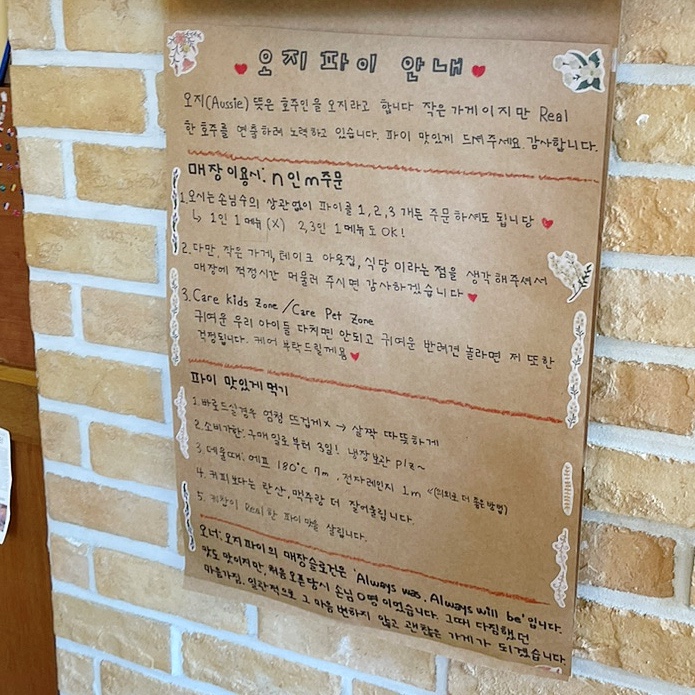 오지파이 안내
오지(Aussie) 뜻은 호주인을 오지라고 합니다 작은 가게이지만 Real
한 호주를 연출하려 노력하고 있습니다. 파이 맛있게 드셔주세요. 감사합니다.
매장 이용시: n인 m주문
1. 오시는 손님수의 상관없이 파이를 1, 2, 3 개든 주문하셔도 됩니당
↳ 1인 1메뉴 (X) 2,3인 1메뉴도 OK!
2. 다만, 작은 가게, 테이크 아웃집, 식당 이라는 점을 생각해주셔서
매장에 적정시간 머물러 주시면 감사하겠습니다
3. Care kids zone / Care Pet Zone
귀여운 우리 아이들 다치면 안되고 귀여운 반려견 놀라면 저 또한
걱정됩니다. 케어 부탁드릴께용
파이 맛있게 먹기
1. 바로드실경우 엄청 뜨겁게x → 살짝 따뜻하게
2. 소비기한: 구매 일로부터 3일! 냉장보관 plz~
3. 데울때: 에프 180°C 7m, 전자레인지 1m «(의외로 더 좋은 방법)
4. 커피보다는 탄산, 맥주랑 더 잘어울립니다.
5. 케찹이 Real한 파이맛을 살립니다.
오너: 오지파이의 매장슬로건은 'Always was, Always will be' 입니다.
맛도 맛이지만, 처음 오픈당시 손님 0명 이었습니다. 그때 다짐했던
마음가짐, 일관적으로 그 마음 변하지 않고 괜찮은 가게가 되겠습니다